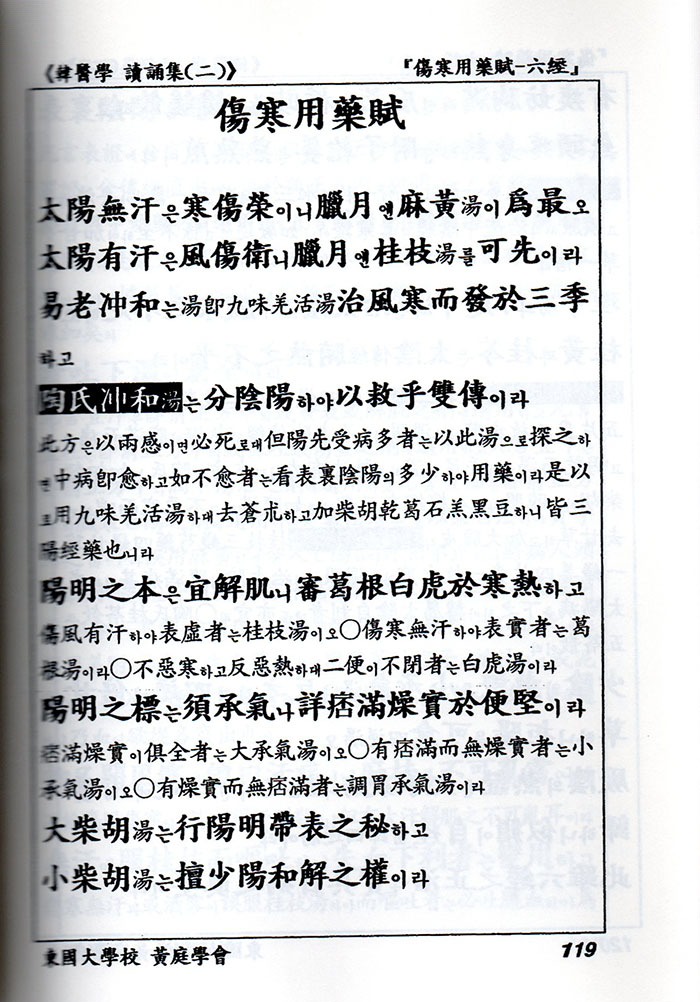 《韓醫學 讀誦集(二)》
『傷寒用藥賦-六經』
傷寒用藥賦
太陽無汗은寒傷榮이니臘月엔麻黃湯이爲最오
太陽有汗은風傷衛니臘月엔桂枝湯를可先이라
易老冲和는湯卽九味羌活湯治風寒而發於三季
하고
陶氏冲和湯는分陰陽하야以救乎雙傳이라
此方은以兩感이면必死로대但陽先受病多者는以此湯으로探之하
면中病卽愈하고如不愈者는看表裏陰陽의多少하야用藥이라是以
로用九味羌活湯하대去蒼朮하고加柴胡乾葛石羔黑豆하니皆三
陽經藥也니라
陽明之本은宜解肌니審葛根白虎於寒熱하고
傷風有汗하야表虛者는桂枝湯이오○傷寒無汗하야表實者는葛
根湯이라○不惡寒하고反惡熱하대二便이不閉者는白虎湯이라
陽明之標는須承氣나詳痞滿燥實於便堅이라
痞滿燥實이俱全者는大承氣湯이오○有痞滿而無燥實者는小
承氣湯이오○有燥實而無痞滿者는調胃承氣湯이라
大柴胡湯는行陽明帶表之秘하고
小柴胡湯는擅少陽和解之權이라
東國大學校 黃庭學會
119